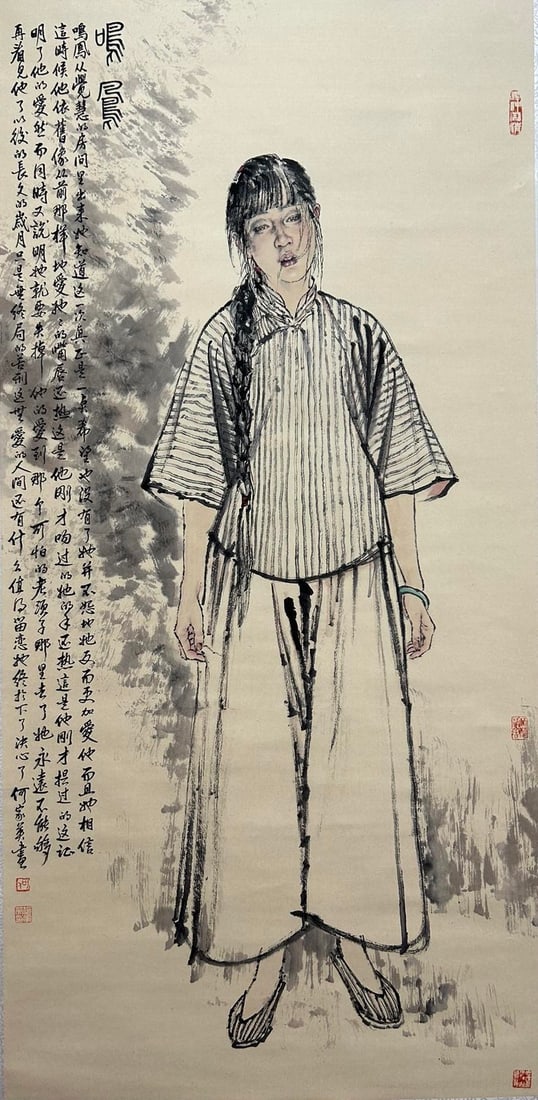 鳴鳳
鳴鳳从覺慧的房间里出来她知道这一次真正是一点希望也没有了她并不怨他她反而更加愛他而且她相信
這時候他依舊像从前那樣地愛她〻的嘴唇还热這是他刚才吻过的她的手还热這是他刚才捏过的这证
明了他的愛然而同時又說明她就要失掉他的愛到那个可怕的老頭子那里去了她永遠不能够
再看見他了以後的長久的歲月只是無终局的苦刑这無愛的人间还有什么值得留恋她终於下了决心了 何家英畫